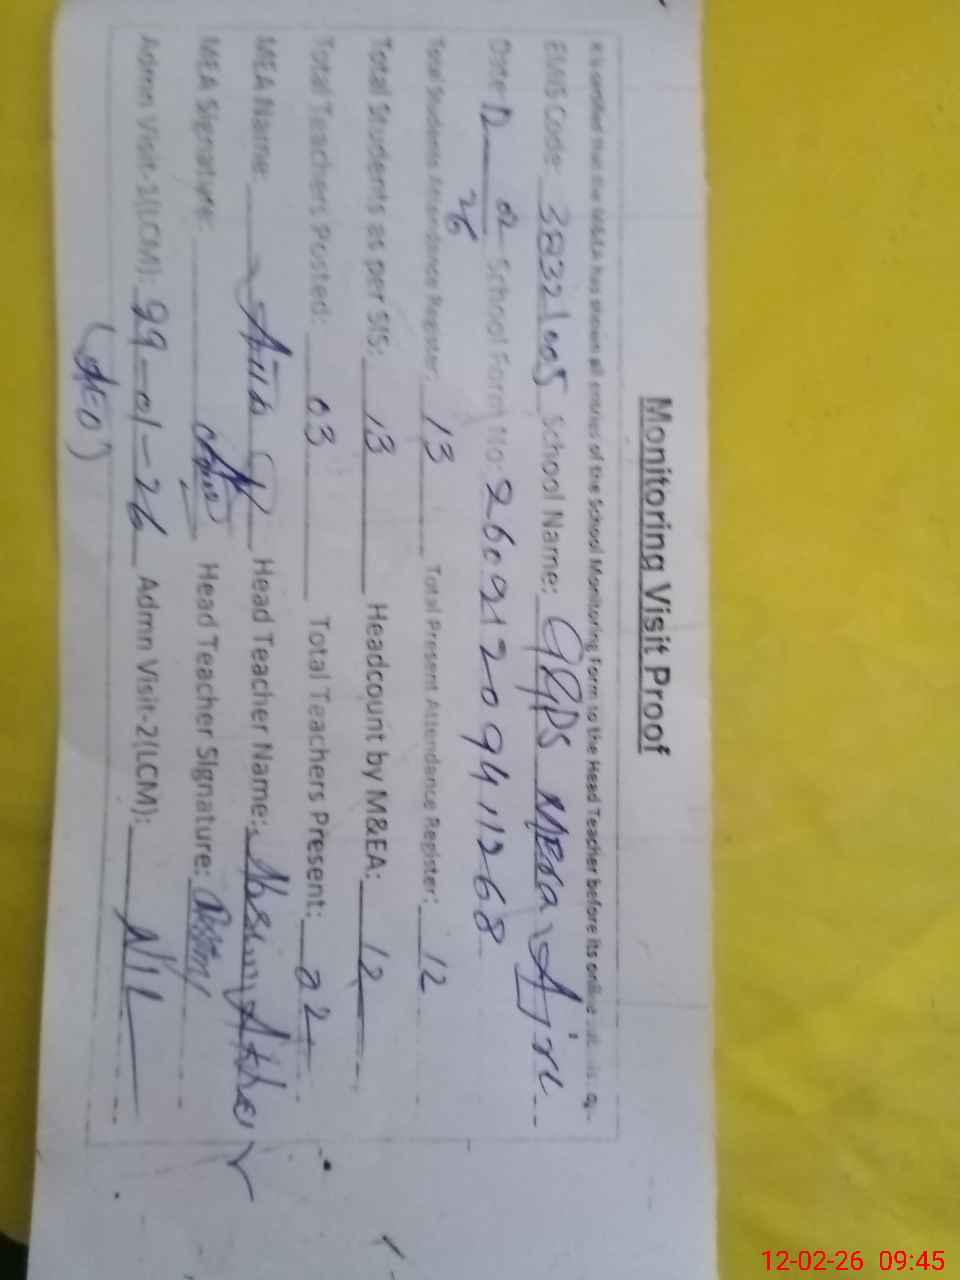 Monitoring Visit Proof
It is certified that the M&EA has shown all entries of the School Monitoring Form to the Head Teacher before its online
EMIS Code: 38321005 School Name: GGPS Mera Ajri
Date 12 02 26 School Form No: 26091209411268
Total Students Attendance Register: 13 Total Present Attendance Register: 12
Total Students as per SIS: 13 Headcount by M&EA: 12
Total Teachers Posted: 03 Total Teachers Present: 02
MEA Name: Head Teacher Name: Akhar
MEA Signature: Head Teacher Signature:
Admn Visit-1(LCM): 29-01-26 Admn Visit-2(LCM): NIL
12-02-26 09:45